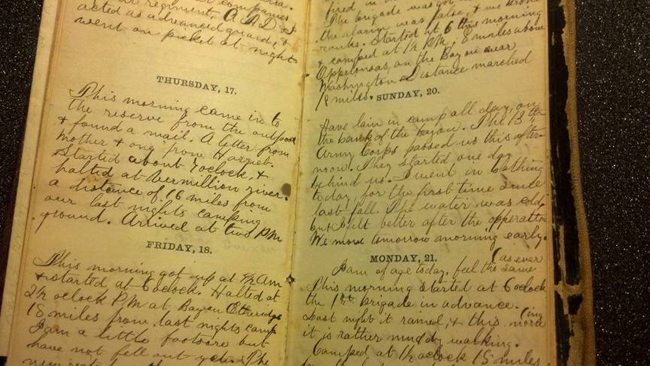 acted as advanced guard, &
went on picket at night
THURSDAY, 17.
This morning came in to
the reserve from the outpost
& found a mail. A letter from
Mother & one from Harriet.
Started about 7 oclock, &
halted at Vermillion river.
a distance of 16 miles from
our last nights camping
ground. Arrived at two P.M.
FRIDAY, 18.
This morning got up at 4½ AM
& started at 6 oclock. Halted at
2½ oclock P.M. at Bayou
18 miles from last nights camp
I am a little footsore but
have not fell out yet. The
fired in
The brigade was
the alarm was false &
ranks. Started at 6 this morning
& camped at 1½ P.M. 8 miles above
Oppelousas, on the Bayou near
Washington. distance marched
18 miles.
SUNDAY, 20.
Have lain in camp all day, on
the bank of the bayou. The 13th
Army Corps passed us this after
noon. They started one day
behind us. I went in bathing
today for the first time since
last fall. The water was cold
but felt better after the operation
We move tomorrow morning early.
MONDAY, 21.
(as ever
I am of age today, feel the same
This morning started at 6 oclock
the 1st Brigade in advance.
Last night it rained, & this morn
(ing
it is rather muddy walking.
Camped at 1½ oclock 15 miles